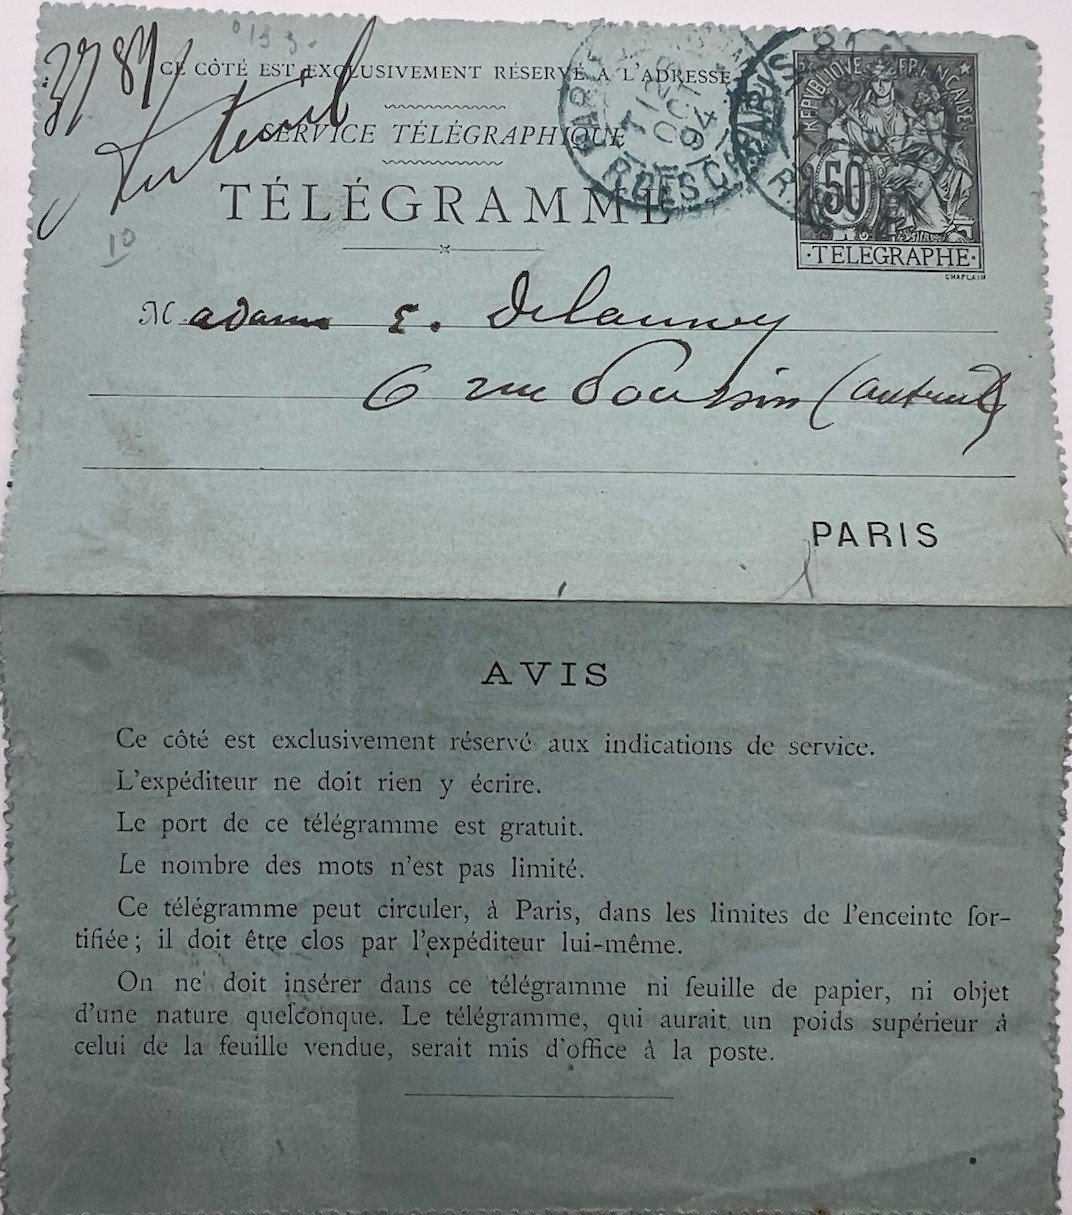 37 87
Auteuil
133
CE CÔTÉ EST EXCLUSIVEMENT RÉSERVÉ A L'ADRESSE
SERVICE TÉLÉGRAPHIQUE
TÉLÉGRAMME
10
PARIS
12
OCT
94
R. DES
PARIS
REPUBLIQUE FRANÇAISE
50
·TELEGRAPHE·
CHAPLAIN
Madame E. Delaunay
6 rue Poussin (Auteuil)
PARIS
AVIS
Ce côté est exclusivement réservé aux indications de service.
L'expéditeur ne doit rien y écrire.
Le port de ce télégramme est gratuit.
Le nombre des mots n'est pas limité.
Ce télégramme peut circuler, à Paris, dans les limites de l'enceinte for-
tifiée; il doit être clos par l'expéditeur lui-même.
On ne doit insérer dans ce télégramme ni feuille de papier, ni objet
d'une nature quelconque. Le télégramme, qui aurait un poids supérieur à
celui de la feuille vendue, serait mis d'office à la poste.